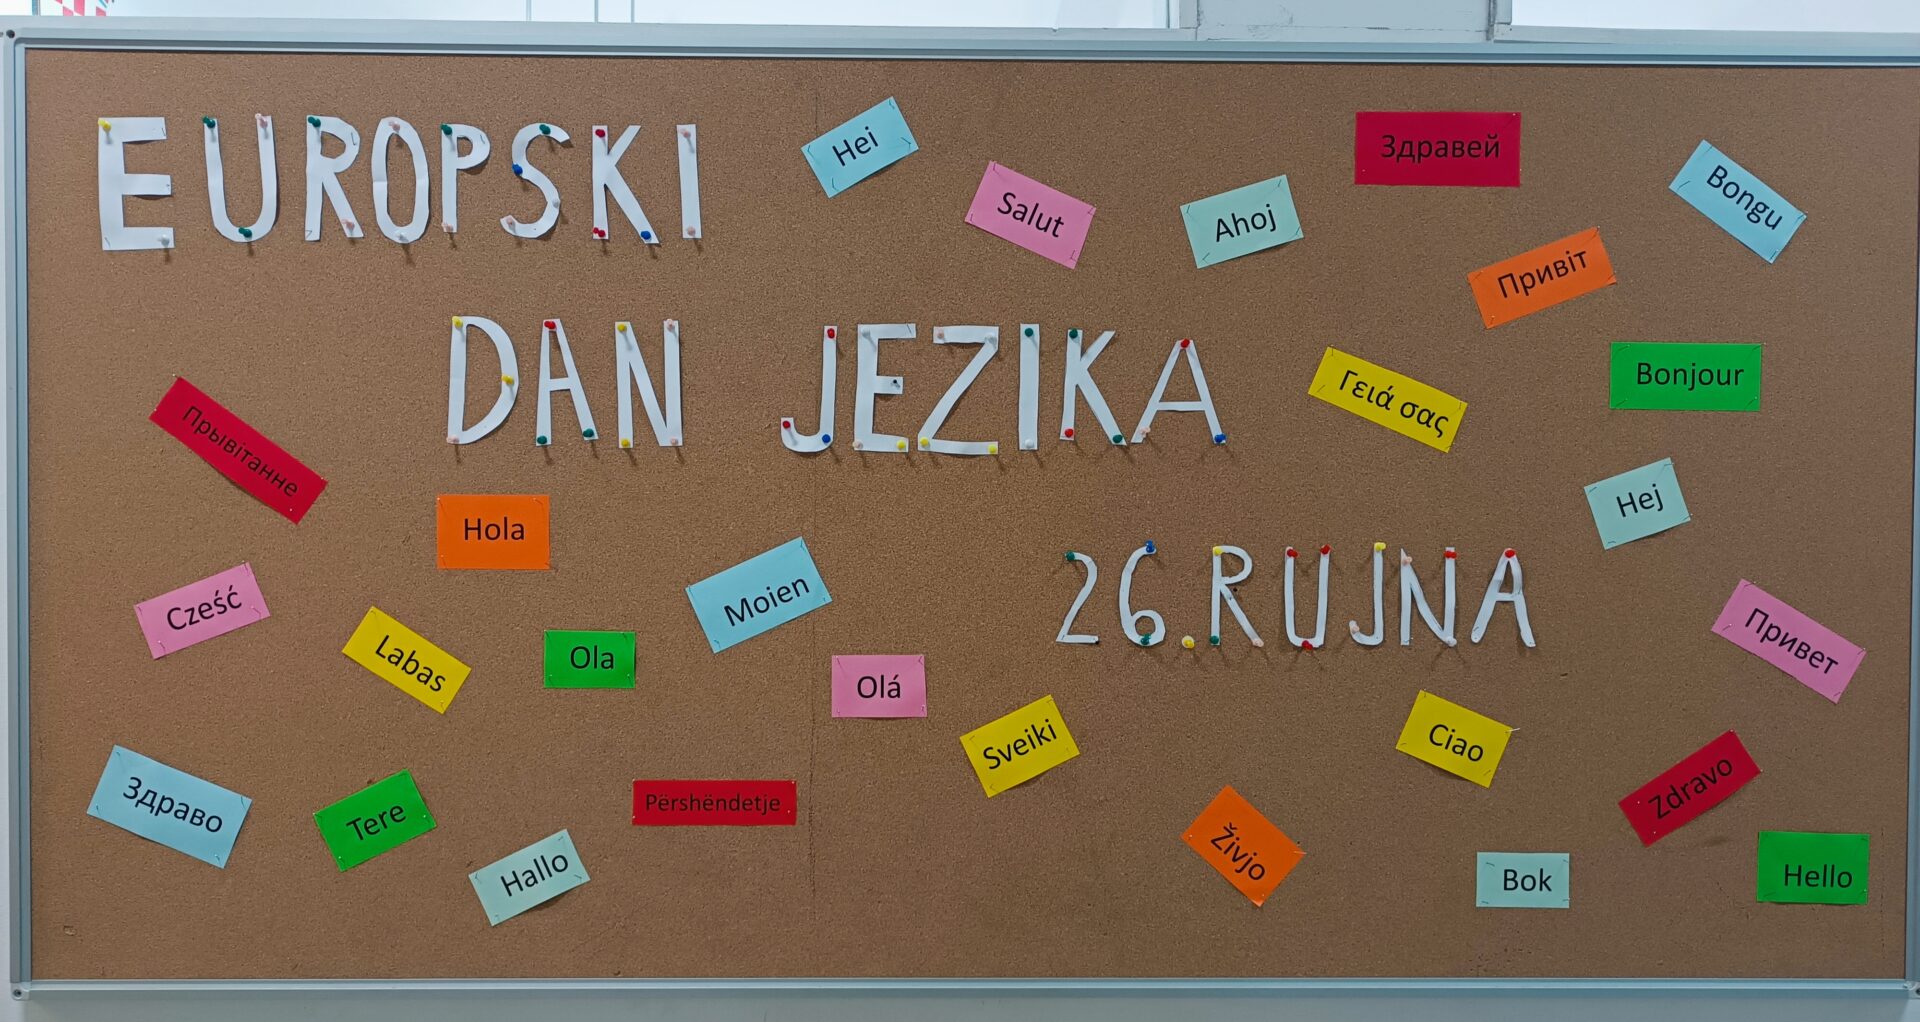 EUROPSKI
DAN JEZIKA
26. RUJNA
Hei
Salut
Ahoj
Здравей
Bongu
Привіт
Γειά σας
Bonjour
Hej
Прывітанне
Hola
Cześć
Labas
Ola
Moien
Olá
Sveiki
Ciao
Привет
Здраво
Tere
Hallo
Përshëndetje
Živjo
Bok
Zdravo
Hello